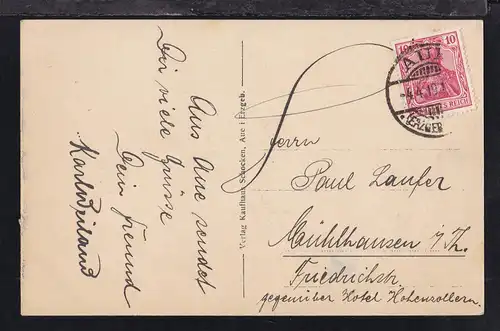 Aus Aue sendet
Dir viele Grüsse
Dein Freund
Karl Weiland
Verlag Kaufhaus Schocken, Aue i Erzgeb.
10
10
REICH
AUE
(ERZGEB
Herrn
Paul Laufer
Mühlhausen i/Th.
Friedrichstr.
gegenüber Hotel Hohenzollern.